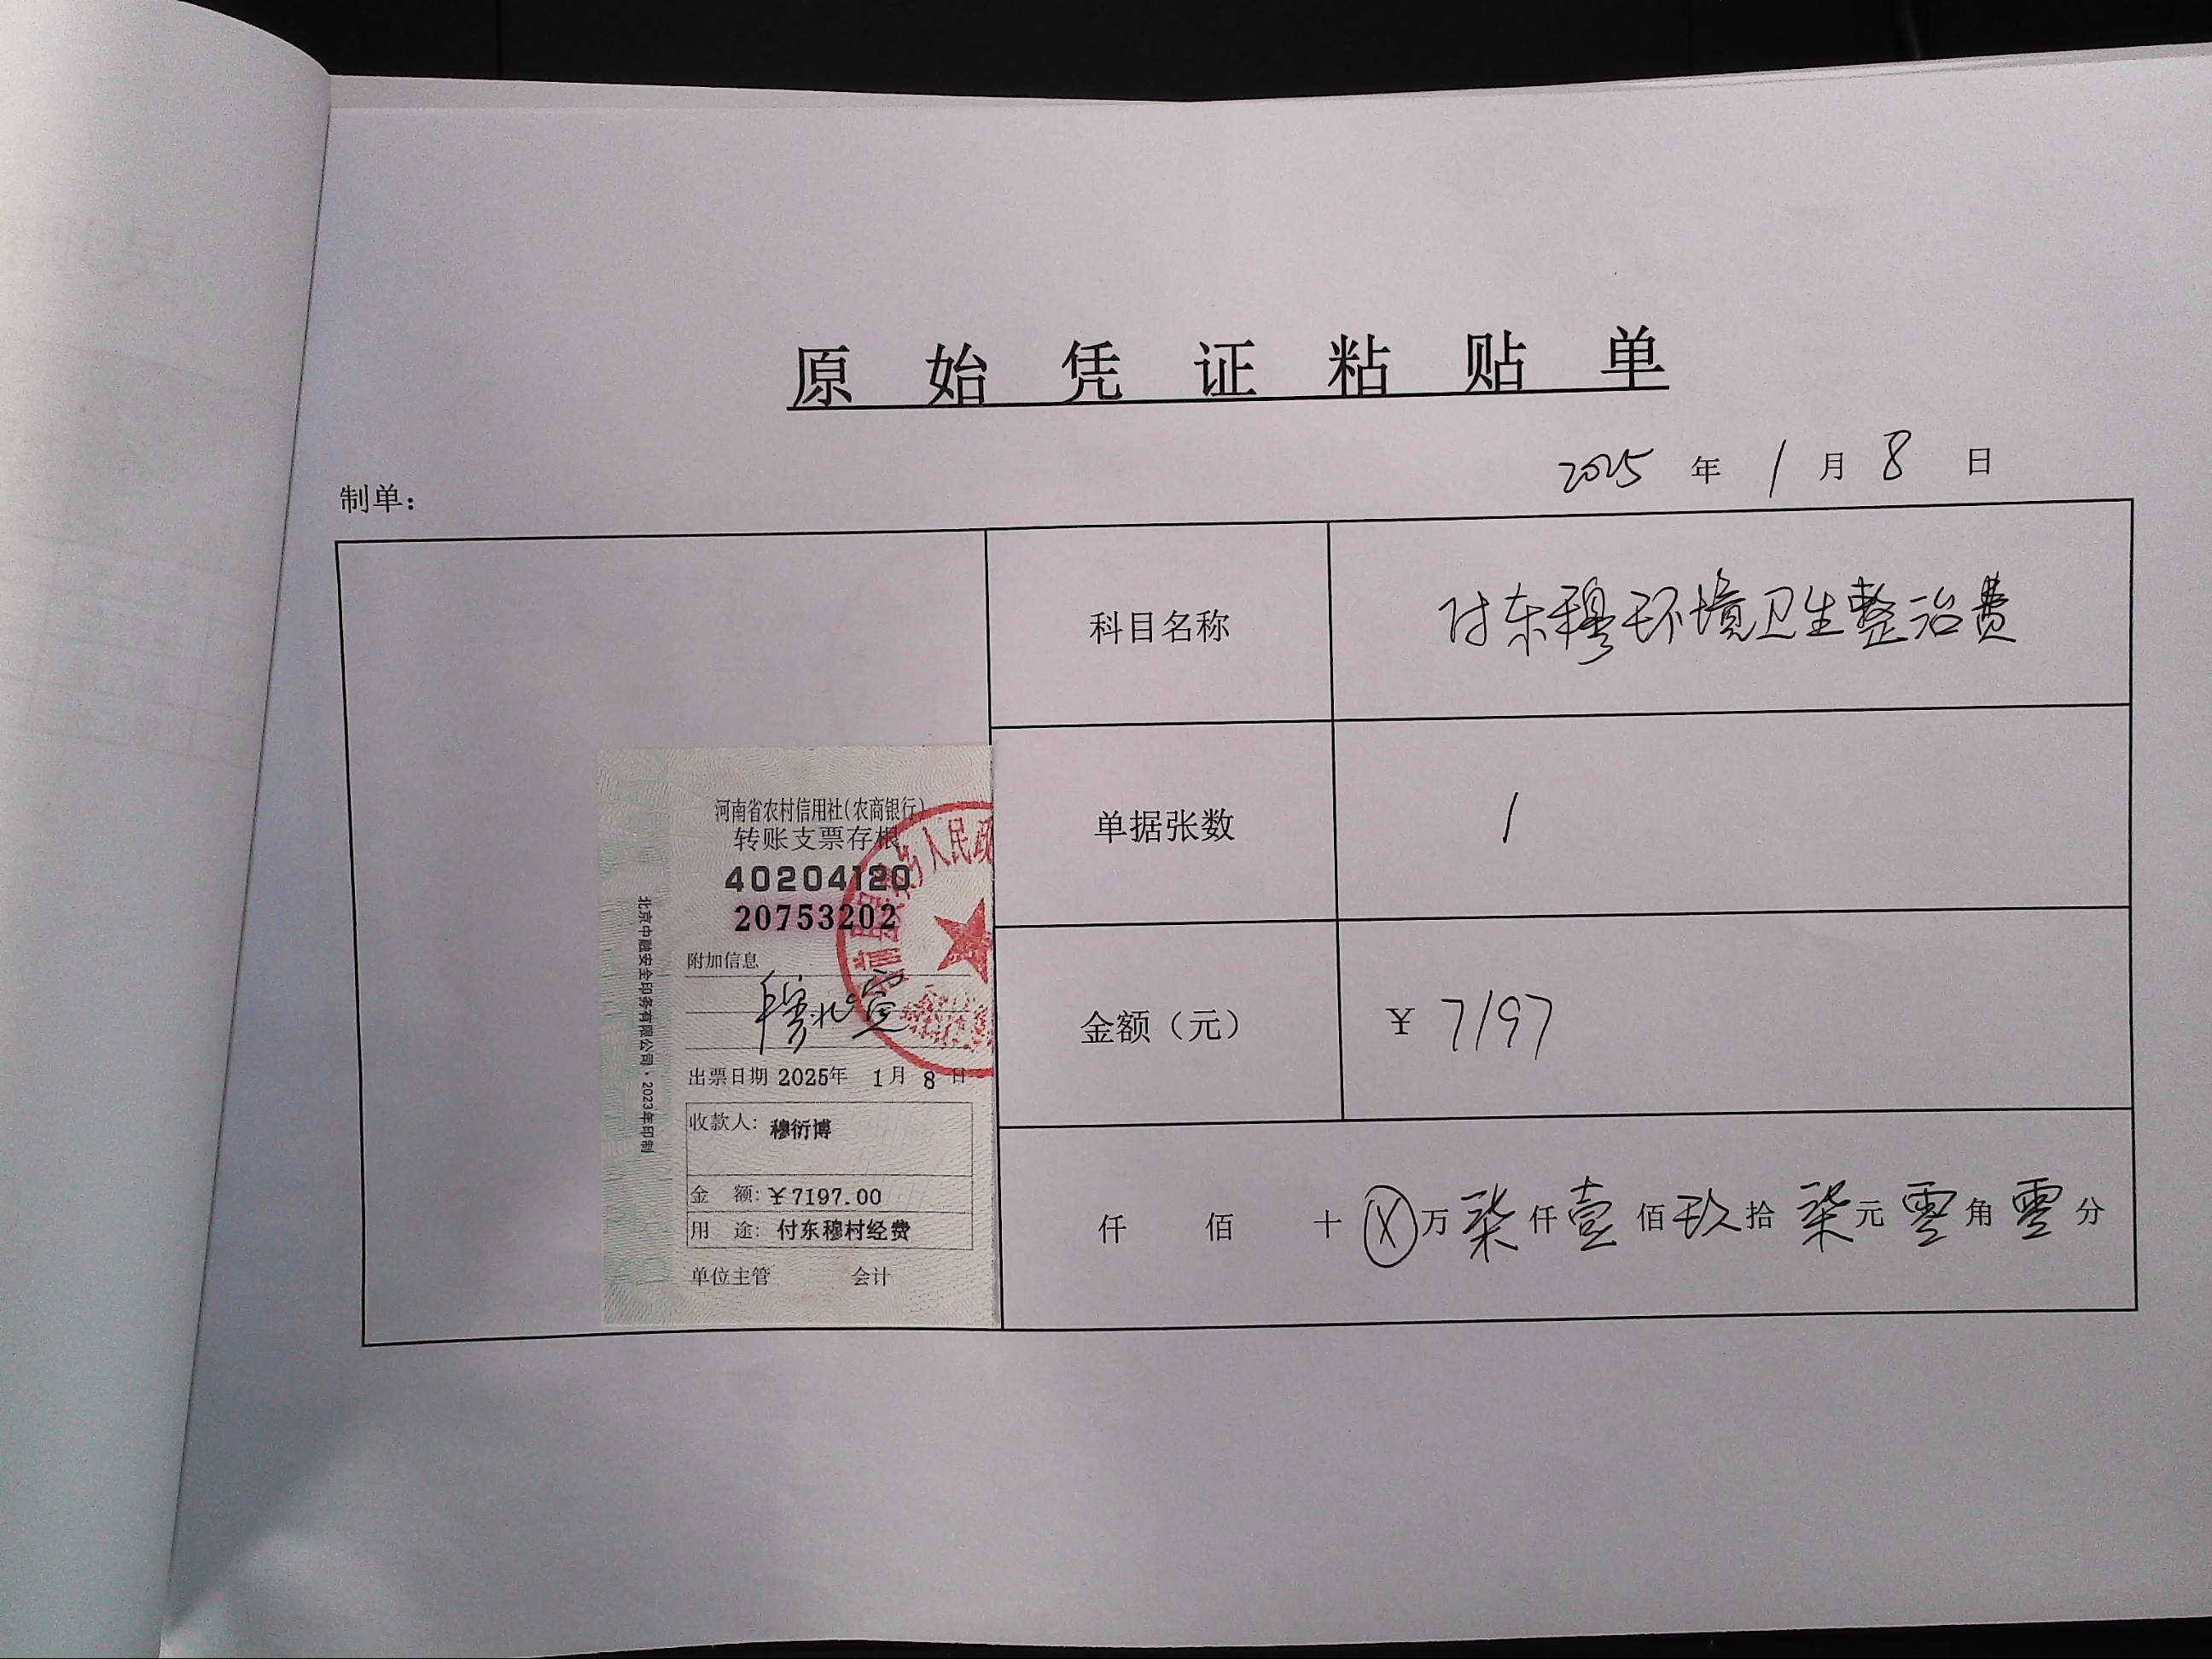 原始凭证粘贴单
2025 年 1 月 8 日
制单：
科目名称 付东穆环境卫生整治费
单据张数 1
金额（元） ￥ 7197
仟 佰 十 ⓧ万 柒仟壹佰玖拾柒元零角零分
河南省农村信用社(农商银行)
转账支票存根
40204120
20753202
附加信息
出票日期 2025年 1月 8 日
收款人：穆衍博
金 额：￥7197.00
用 途：付东穆村经费
单位主管 会计
北京中融安全印务有限公司·2023年印制
乡人民政